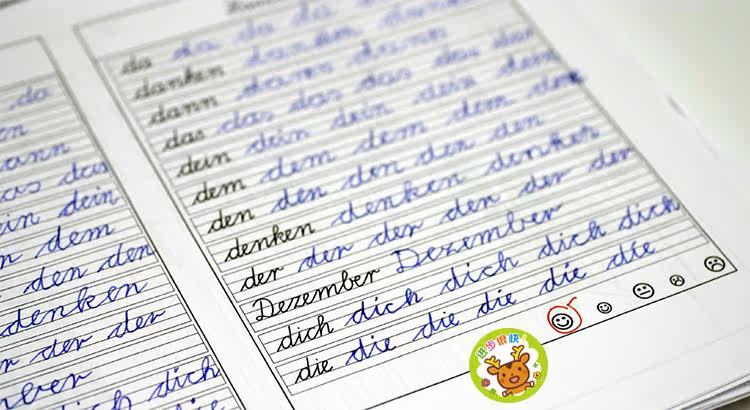 da
as das
in dein
dem
den den
denken
der der
dich
die
da da da da
danken danken danken
dann dann dann
das das das das das das
dein dein dein dein dein
dem dem dem dem dem
den den den den den
denken denken denken
der der der der der der
Dezember Dezember
dich dich dich dich dich
die die die die die die
进步很快!